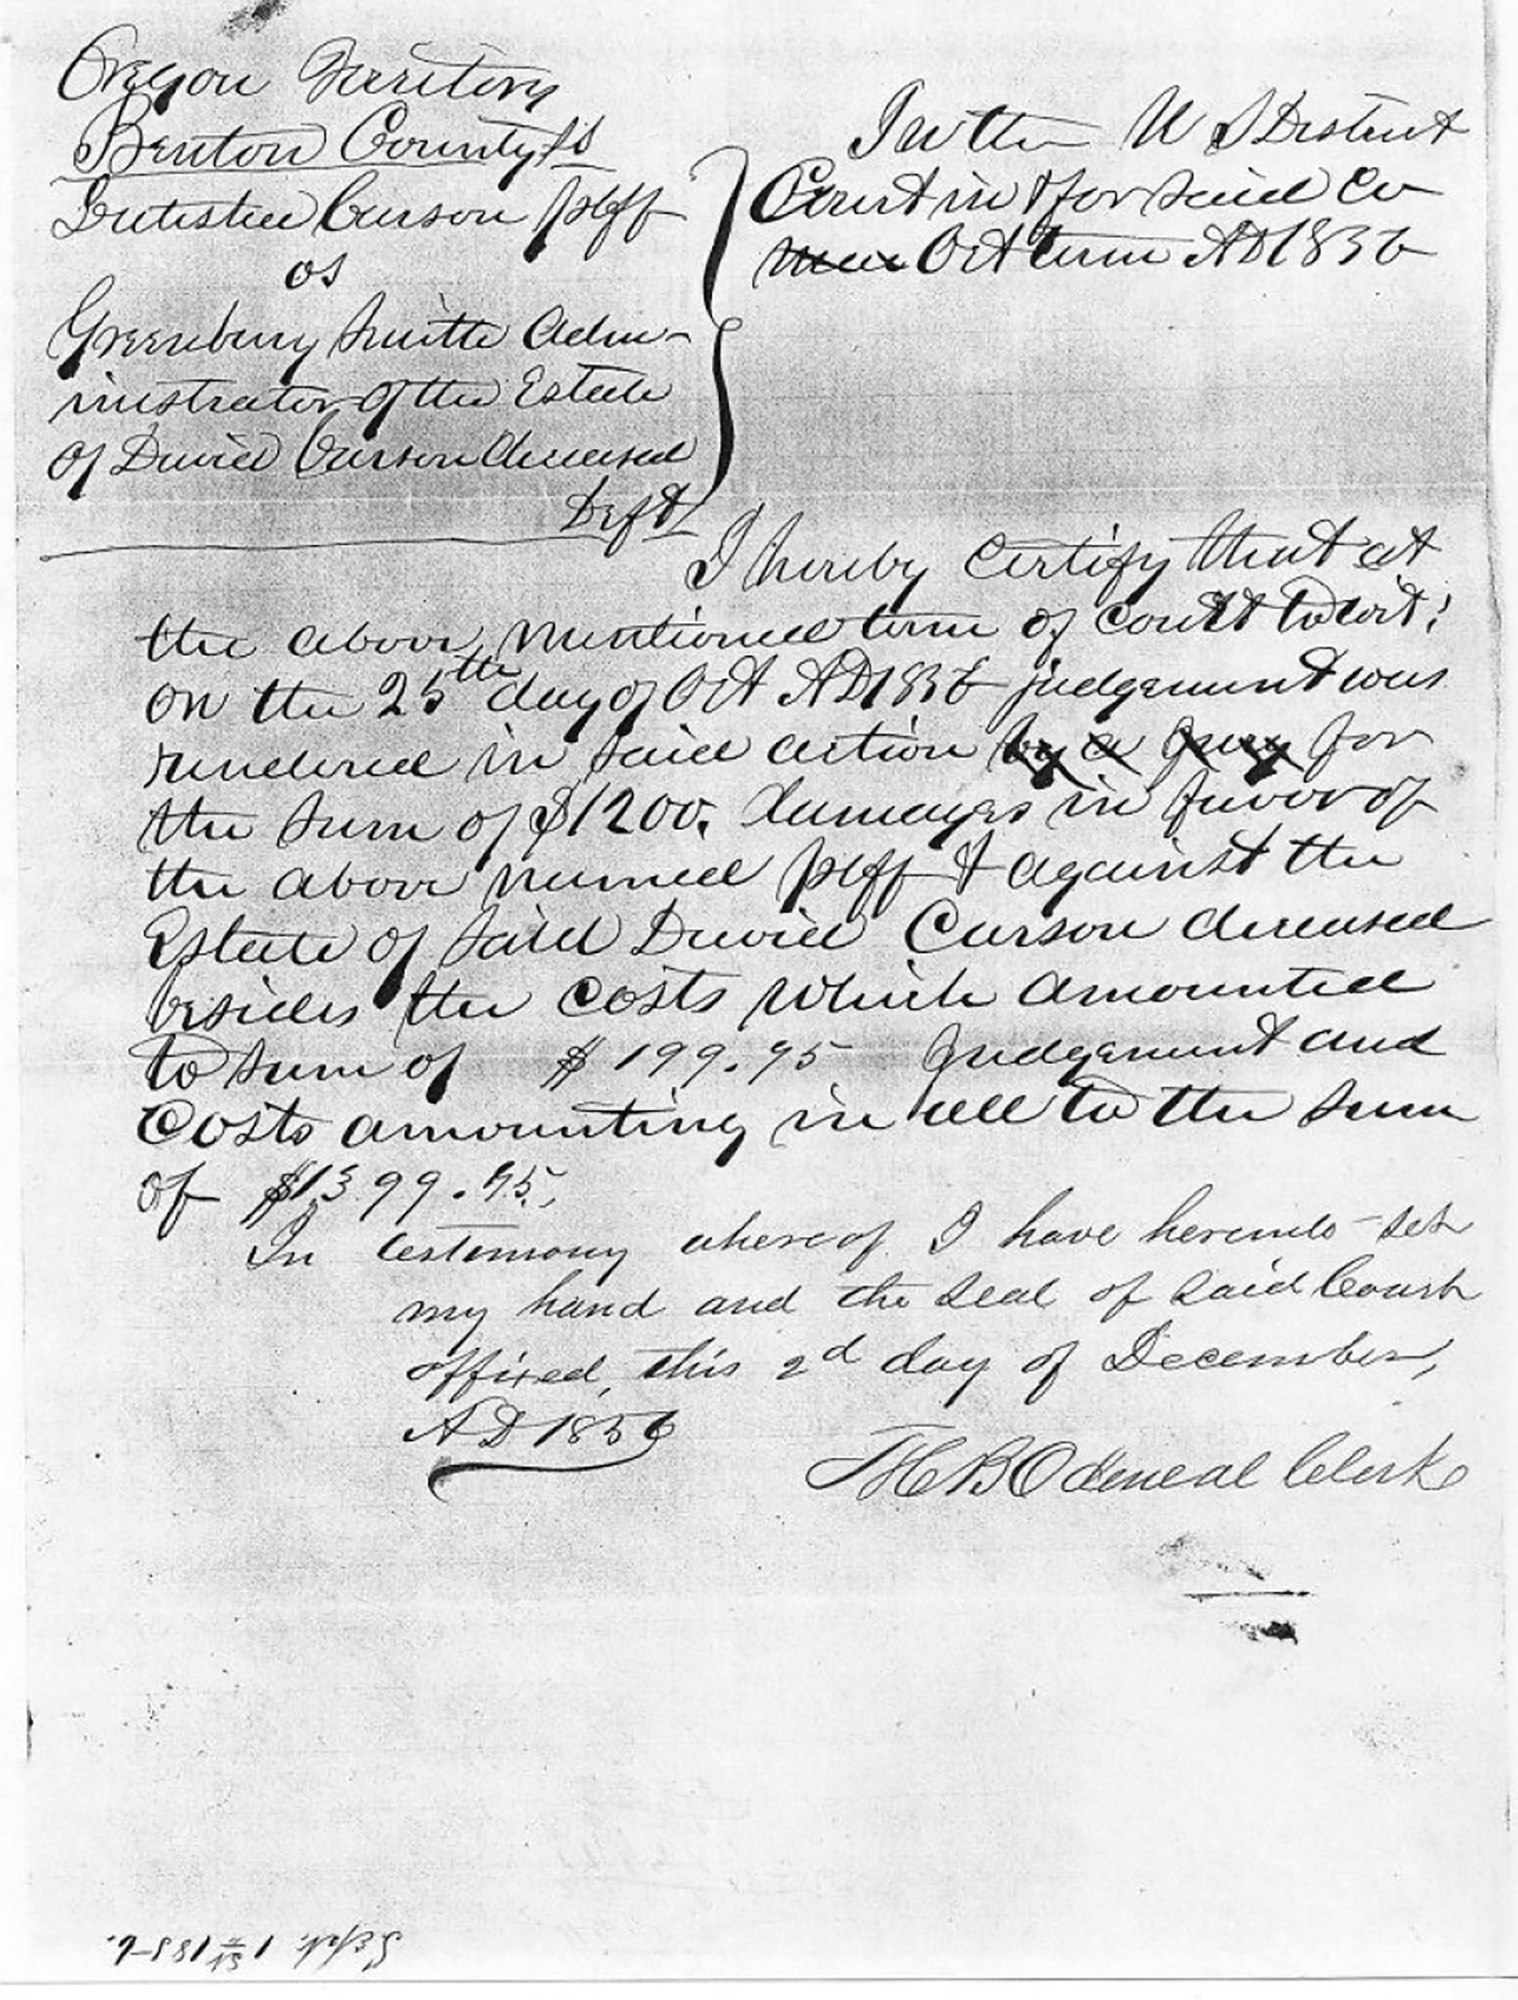 Oregon Territory
Benton County ss
Letishee Carson plff
vs
Greenbury Smith Adm-
inistrator of the Estate
of David Carson deceased
Deft
In the U S District
Court in & for said Co
Oct term AD 1856
I hereby certify that at
the above mentioned term of court towit:
on the 25th day of Oct AD 1856 judgement was
rendered in said action by a jury for
the sum of $1200. damages in favor of
the above named plff & against the
Estate of said David Carson deceased
besides the costs which amounted
to sum of $199.95 Judgement and
Costs amounting in all to the sum
of $1399.95.
In testimony whereof I have hereunto set
my hand and the seal of said Court
affixed, this 2d day of December,
AD 1856
T H B Odeneal Clerk
1856